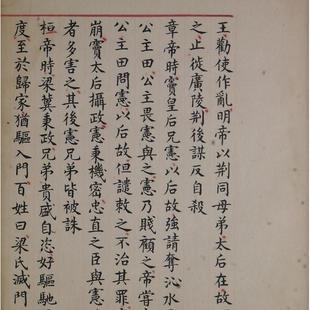 王勸使作亂明帝以荆同母弟太后在故
之止徙廣陵荆後謀反自殺
章帝時竇皇后兄憲以后故強請奪沁水
公主田公主畏憲與之憲乃賤顧之帝嘗
公主田問憲以后故但譴敕之不治其罪
崩竇太后攝政憲秉機密忠直之臣與憲
者多害之其後憲兄弟皆被誅
桓帝時梁冀秉政兄弟貴盛自恣好驅馳
度至於歸家猶驅入門百姓曰梁氏滅門